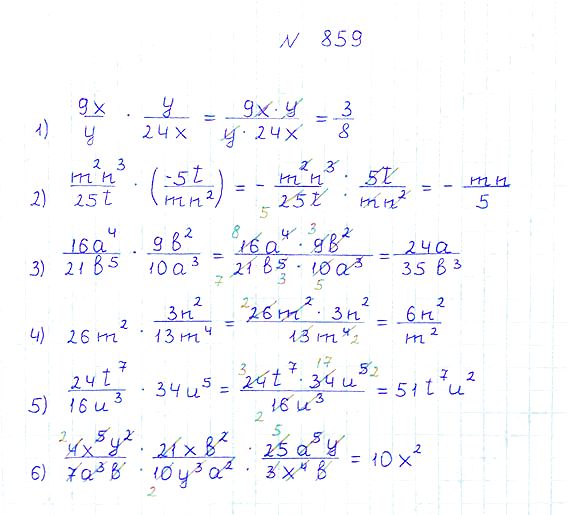 N 859
1) 9x/y · y/24x = 9x · y/y · 24x = 3/8
2) m²n³/25t · (-5t/mn²) = - m²n³/25t : 5t/mn² = - mn/5
5
3) 16a⁴/21b⁵ · 9b²/10a³ = 16a⁴ · 9b²/21b⁵ · 10a³ = 24a/35b³
8 3 7 3 5
4) 26m² · 3n²/13m⁴ = 26m² · 3n²/13m⁴ = 6n²/m²
2 2
5) 24t⁷/16u³ · 34u⁵ = 24t⁷ · 34u⁵/16u³ = 51t⁷u²
3 17 2 2
6) 4x⁵y²/7a³b · 21xb²/10y³a² · 25a⁵y/3x⁴b = 10x²
2 5 2